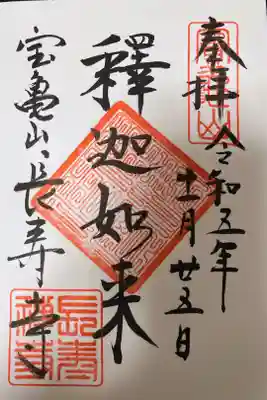 奉拝
令和五年
十一月廿五日
釋迦如来
宝亀山 長寿寺
長寿禅寺